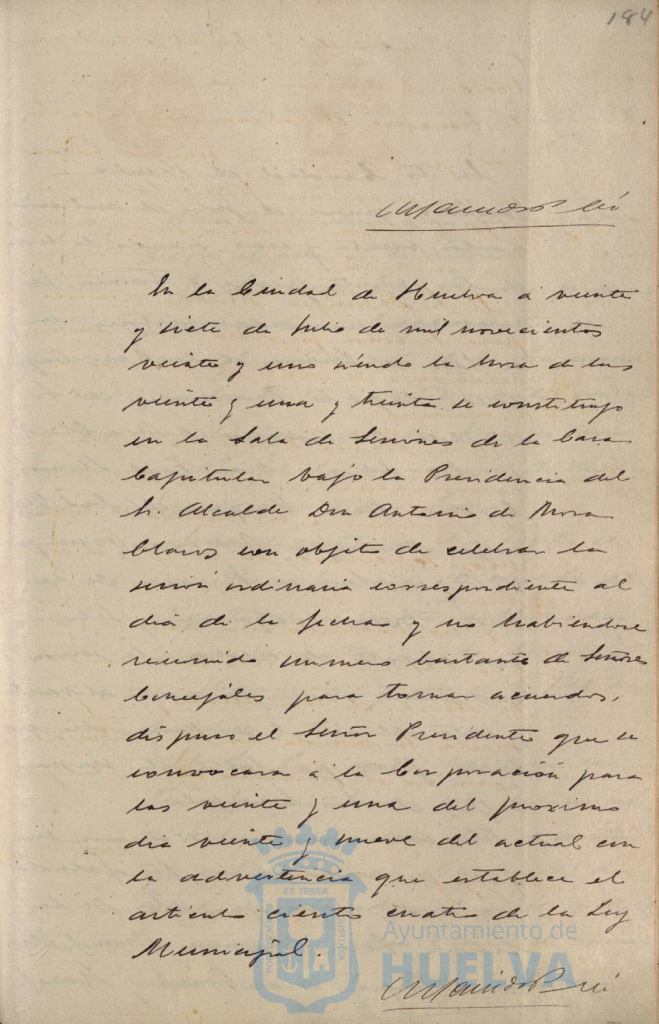 184
En la Ciudad de Huelva á veinte
y siete de Julio de mil novecientos
veinte y uno siendo la hora de las
veinte y una y treinta se constituyo
en la Sala de Sesiones de la Casa
Capitular bajo la Presidencia del
Sr. Alcalde Don Antonio de Mora
Claros con objeto de celebrar la
sesión ordinaria correspondiente al
dia de la fecha y no habiendose
reunido numero bastante de Señores
Concejales para tomar acuerdos,
dispuso el Señor Presidente que se
convocara á la Corporación para
las veinte y una del proximo
dia veinte y nueve del actual con
la advertencia que establece el
articulo ciento cuatro de la Ley
Municipal.
ET TERRÆ
Ayuntamiento de
HUELVA